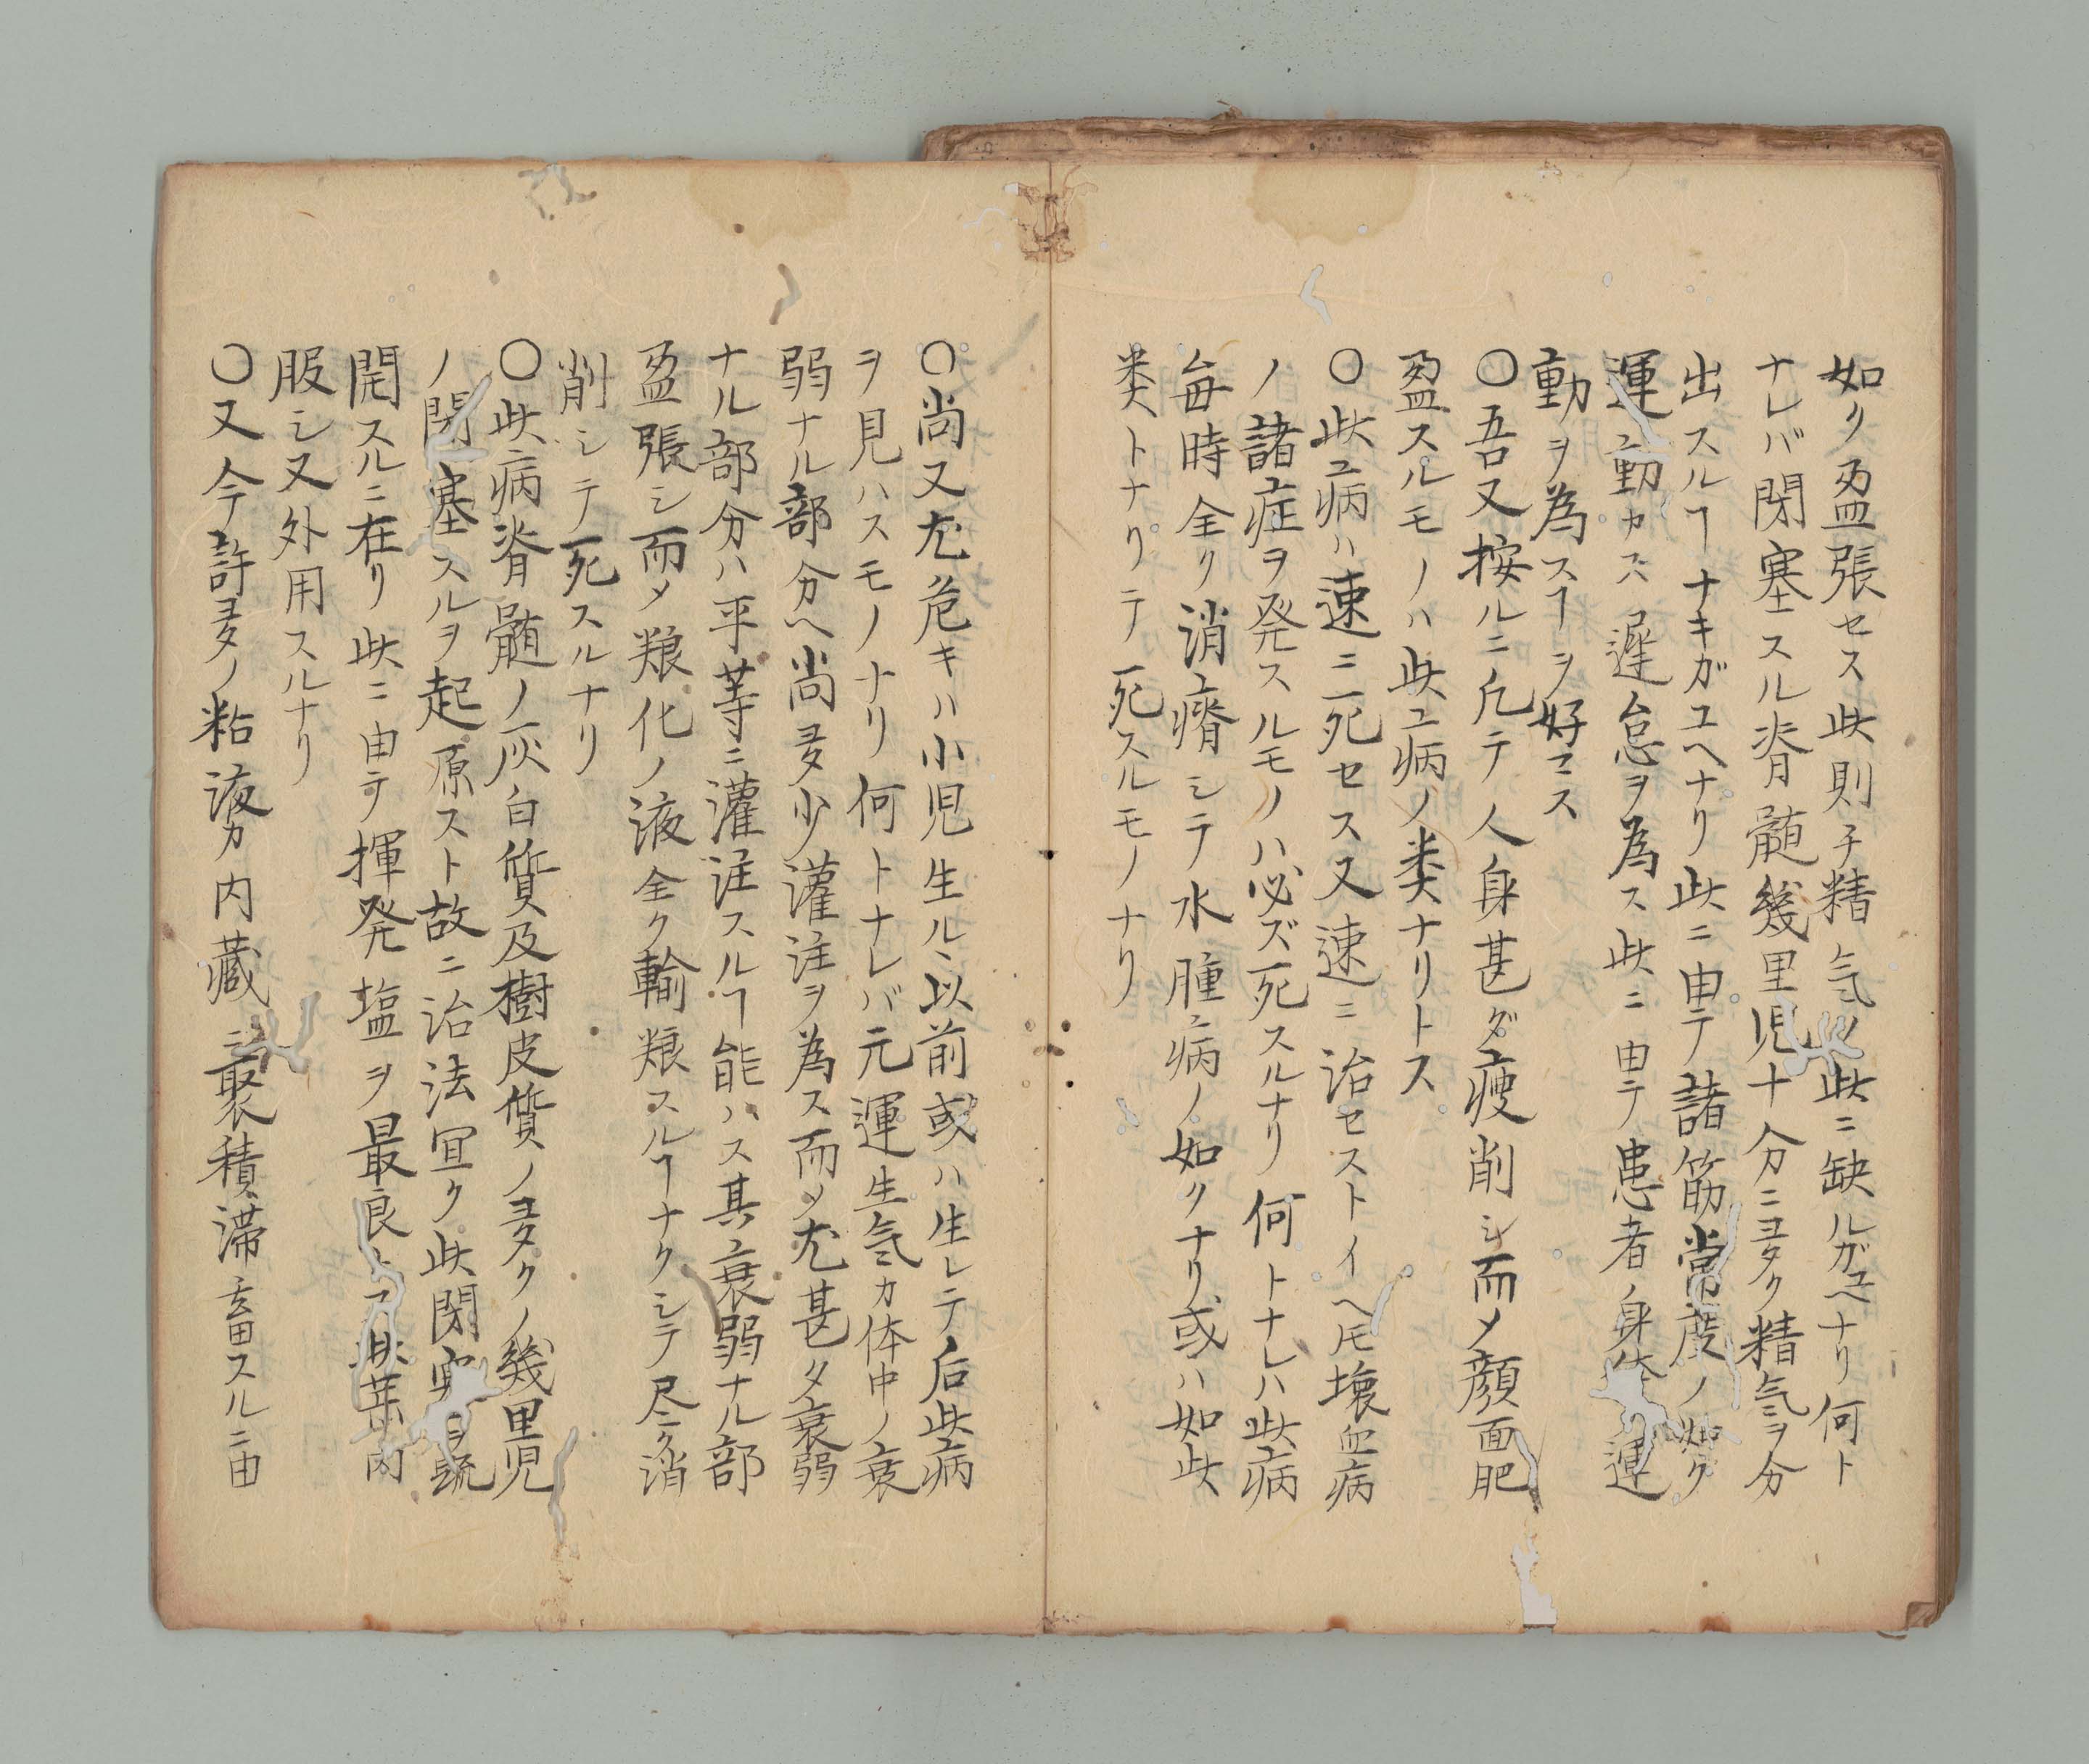 如ク盈張セス此則チ精気ノ此ニ缺ルガユヘナリ何ト
ナレバ閉塞スル脊髄幾里児十分ニヨク精気ヲ分
出スルヿナキガユヘナリ此ニ由テ諸筋常度ノ如ク
運動カス遲怠ヲ為ス此ニ由テ患者ノ身体運
動ヲ為スヿヲ好マス
〇吾又按ルニ凡テ人身甚ダ瘦削シ而メ顔面肥
盈スルモノハ此病ノ類ナリトス
〇此病ハ速ニ死セス又速ニ治セストイヘ𪜈壊血病
ノ諸症ヲ発スルモノハ必ズ死スルナリ何トナレハ此病
毎時全ク消瘠シテ水腫病ノ如クナリ或ハ如此
類トナリテ死スルモノナリ
〇尚又尤危キハ小児生ル以前或ハ生レテ后此病
ヲ見ハスモノナリ何トナレバ元運生気カ体中ノ衰
弱ナル部分ヘ尚多少灌注ヲ為ス而メ尤甚タ衰弱
ナル部分ハ平等ニ灌注スルヿ能ハス其衰弱ナル部
盈張シ而メ粮化ノ液全ク輸粮スルヿナクシテ尽ク消
削シテ死スルナリ
〇此病脊髄ノ灰白質及樹皮質ノ多クノ幾里児
ノ閉塞スルヲ起原スト故ニ治法冝ク此閉塞ヲ疏
開スルニ在リ此ニ由テ揮発塩ヲ最良トス此薬内
服シ又外用スルナリ
〇又今許多ノ粘液カ内蔵ニ聚積滞畜スルニ由